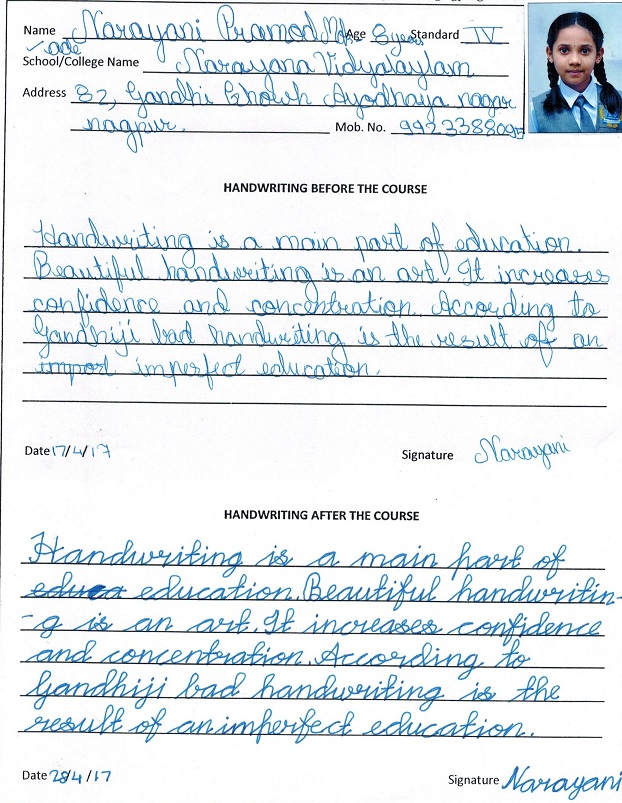 Name Narayani Pramod Age 8 years Standard IV
School/College Name Narayana Vidyalaylam
Address 82, Gandhi Chowk Ayodhaya nagar
nagpur. Mob. No.
HANDWRITING BEFORE THE COURSE
Handwriting is a main part of education.
Beautiful handwriting is an art. It increases
confidence and concentration. According to
Gandhiji bad handwriting is the result of an
import imperfect education.
Date 17/4/17 Signature Narayani
HANDWRITING AFTER THE COURSE
Handwriting is a main part of
educa education. Beautiful handwritin-
-g is an art. It increases confidence
and concentration. According to
Gandhiji bad handwriting is the
result of an imperfect education.
Date 28/4/17 Signature Narayani